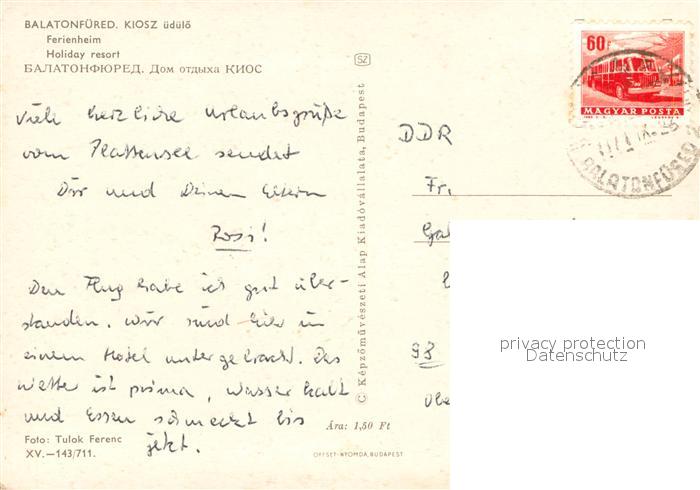 BALATONFÜRED. KIOSZ üdülő
Ferienheim
Holiday resort
БАЛАТОНФЮРЕД. Дом отдыха КИОС
Viele herzliche Urlaubsgrüße
vom Plattensee sendet
Dir und Deinen Eltern
Rosi!
Den Flug habe ich gut über-
standen. Wir sind hier in
einem Hotel untergebracht. Das
Wetter ist prima, Wasser kalt
und Essen schmeckt bis
jetzt.
Foto: Tulok Ferenc
XV.—143/711.
SZ
© Képzőművészeti Alap Kiadóvállalata, Budapest
Ára: 1,50 Ft
OFFSET-NYOMDA, BUDAPEST
60f
MAGYAR POSTA
BALATONFÜRED
DDR
Fr.
93
privacy protection
Datenschutz